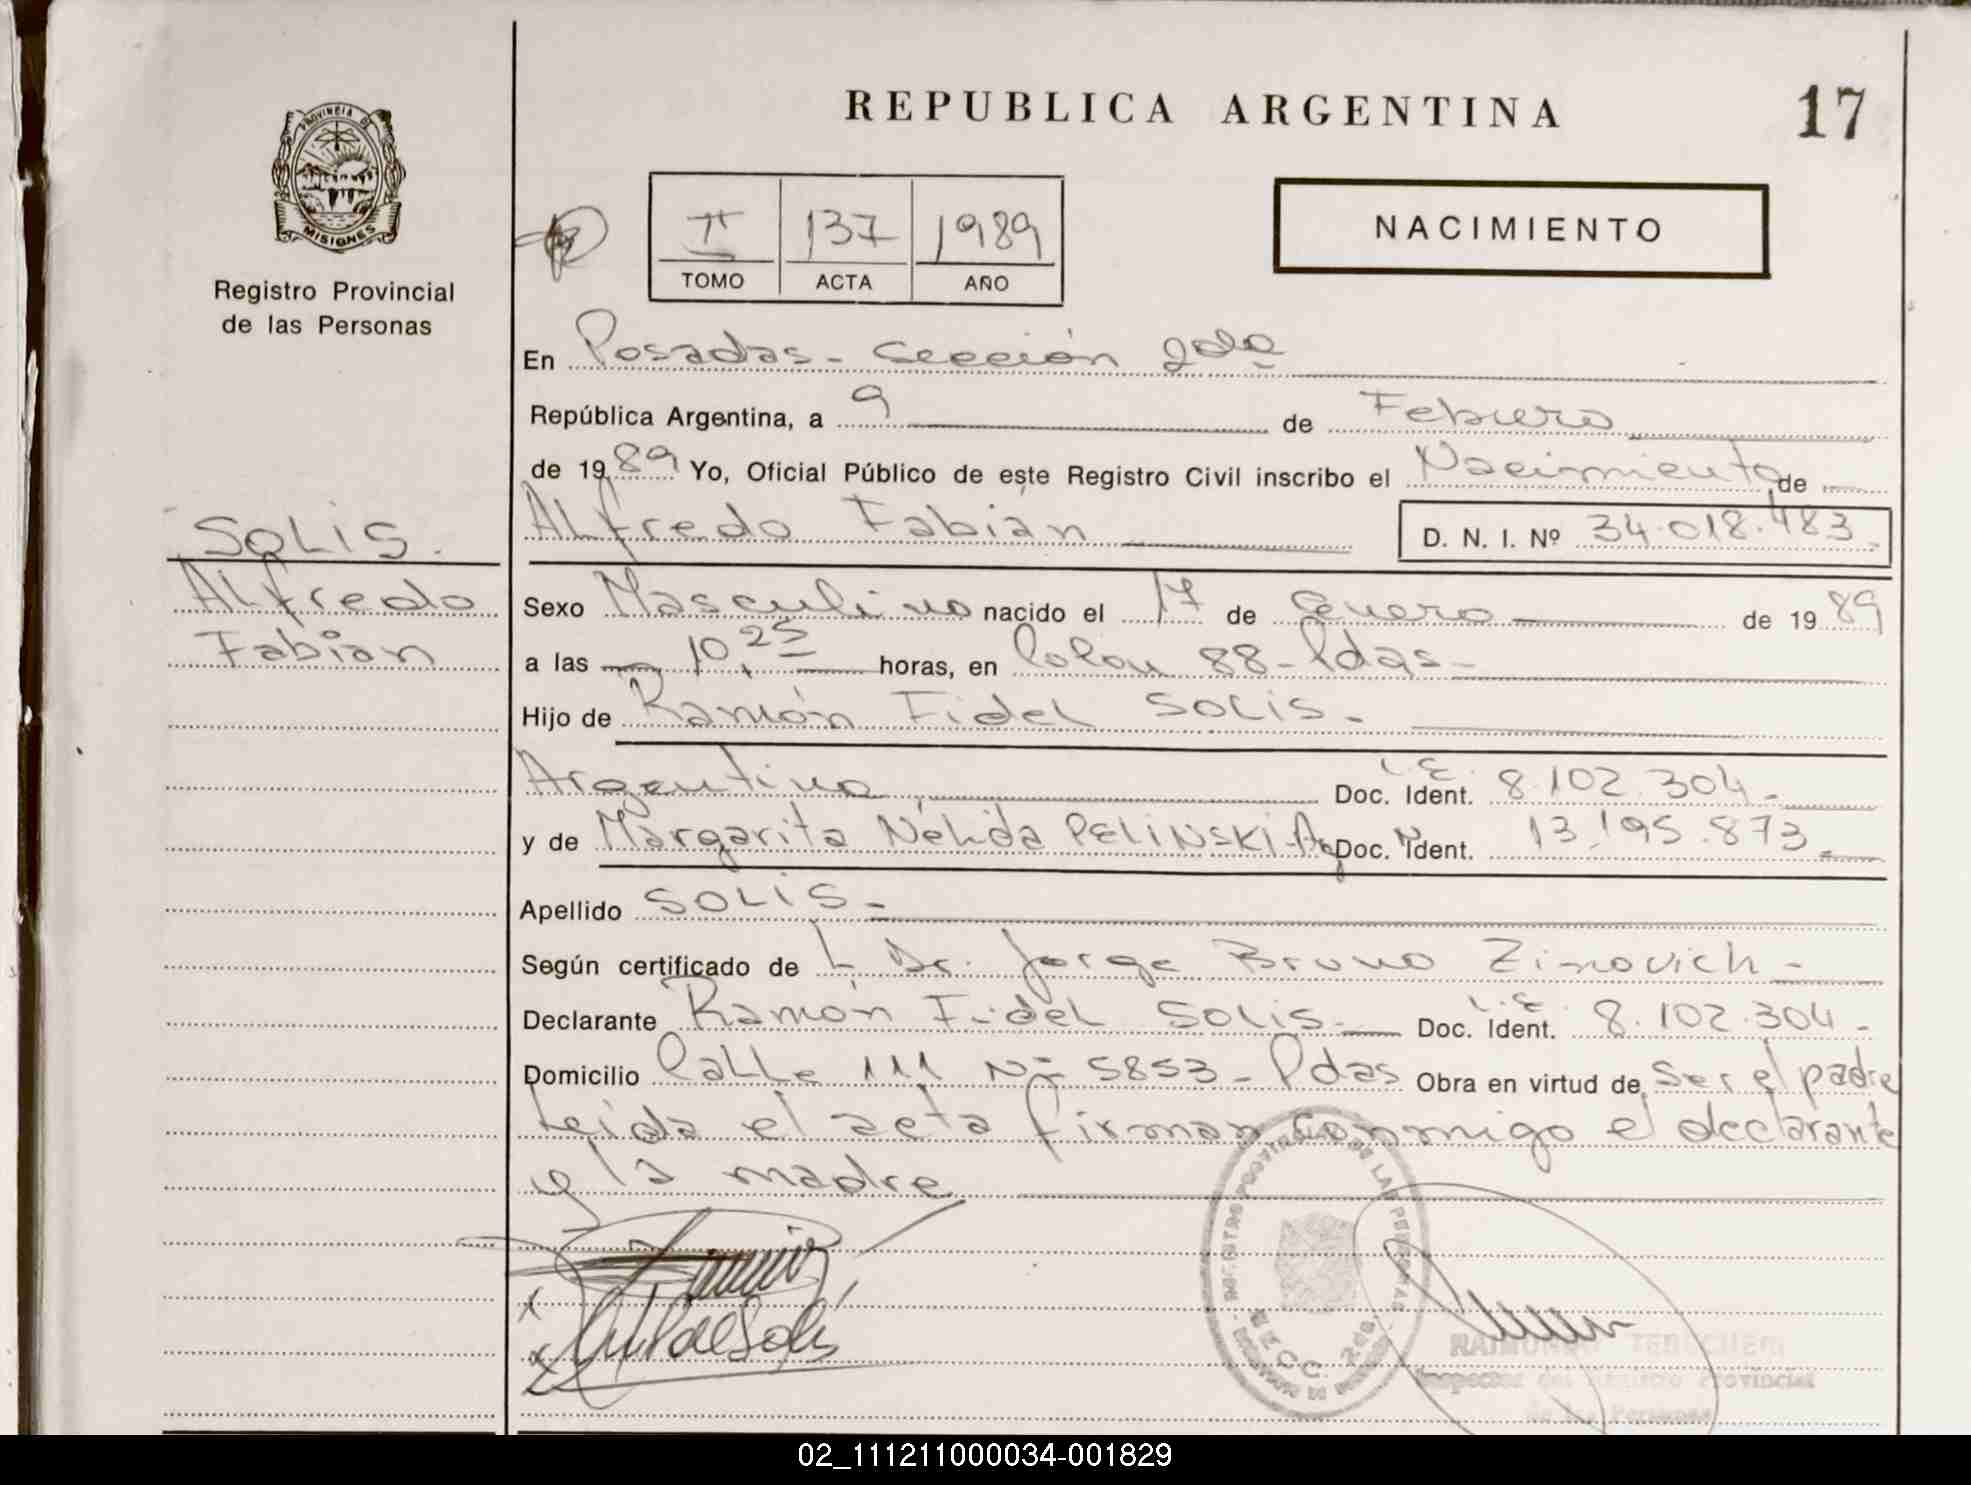 REPUBLICA ARGENTINA
17
PROVINCIA D
MISIONES
Registro Provincial
de las Personas
137 1989
TOMO ACTA AÑO
NACIMIENTO
En Posadas - Sección 2da
República Argentina, a 9 de Febrero
de 1989 Yo, Oficial Público de este Registro Civil inscribo el Nacimiento de
SOLIS.
Alfredo
Fabián
Alfredo Fabián D. N. I. Nº 34.018.483.
Sexo Masculino nacido el 17 de Enero de 1989
a las 10,25 horas, en Colon 88 - Pdas -
Hijo de Ramón Fidel SOLIS -
Argentino Doc. Ident. L.E. 8.102.304 -
y de Margarita Nélida PELINSKI - Arg Doc. Ident. 13.195.873 -
Apellido SOLIS -
Según certificado de Dr. Jorge Bruno Zinovich -
Declarante Ramón Fidel SOLIS - Doc. Ident. L.E. 8.102.304 -
Domicilio Calle 111 Nº 5853 - Pdas Obra en virtud de ser el padre
Leida el acta firman conmigo el declarante
y la madre
REGISTRO PROVINCIAL DE LAS PERSONAS
RAIMUNDO
Inspector del Registro Provincial
de las Personas
02_111211000034-001829